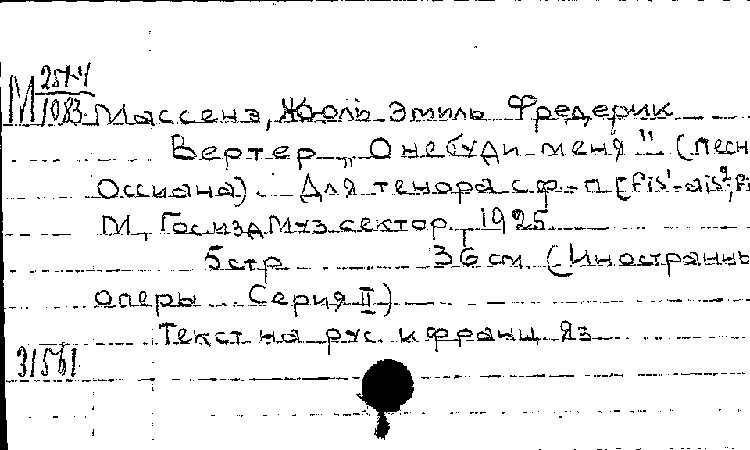 М 257-4
1083 Массенэ, Жюль Эмиль Фредерик
Вертер „О не буди меня" (Песн
Оссиана). Для тенора с ф-п [fis¹-ais²; fi
М, Госизд Муз сектор, 1925
5 стр 36 см (Иностранны
оперы Серия II)
Текст на рус и франц яз
31561